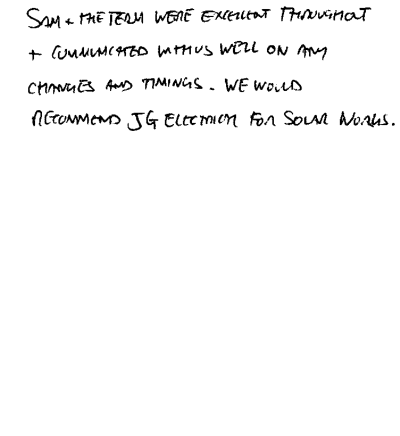 SAM + THE TEAM WERE EXCELLENT THROUGHOUT
+ COMMUNICATED WITH US WELL ON ANY
CHANGES AND TIMINGS. WE WOULD
RECOMMEND JG ELECTRICAL FOR SOLAR WORKS.